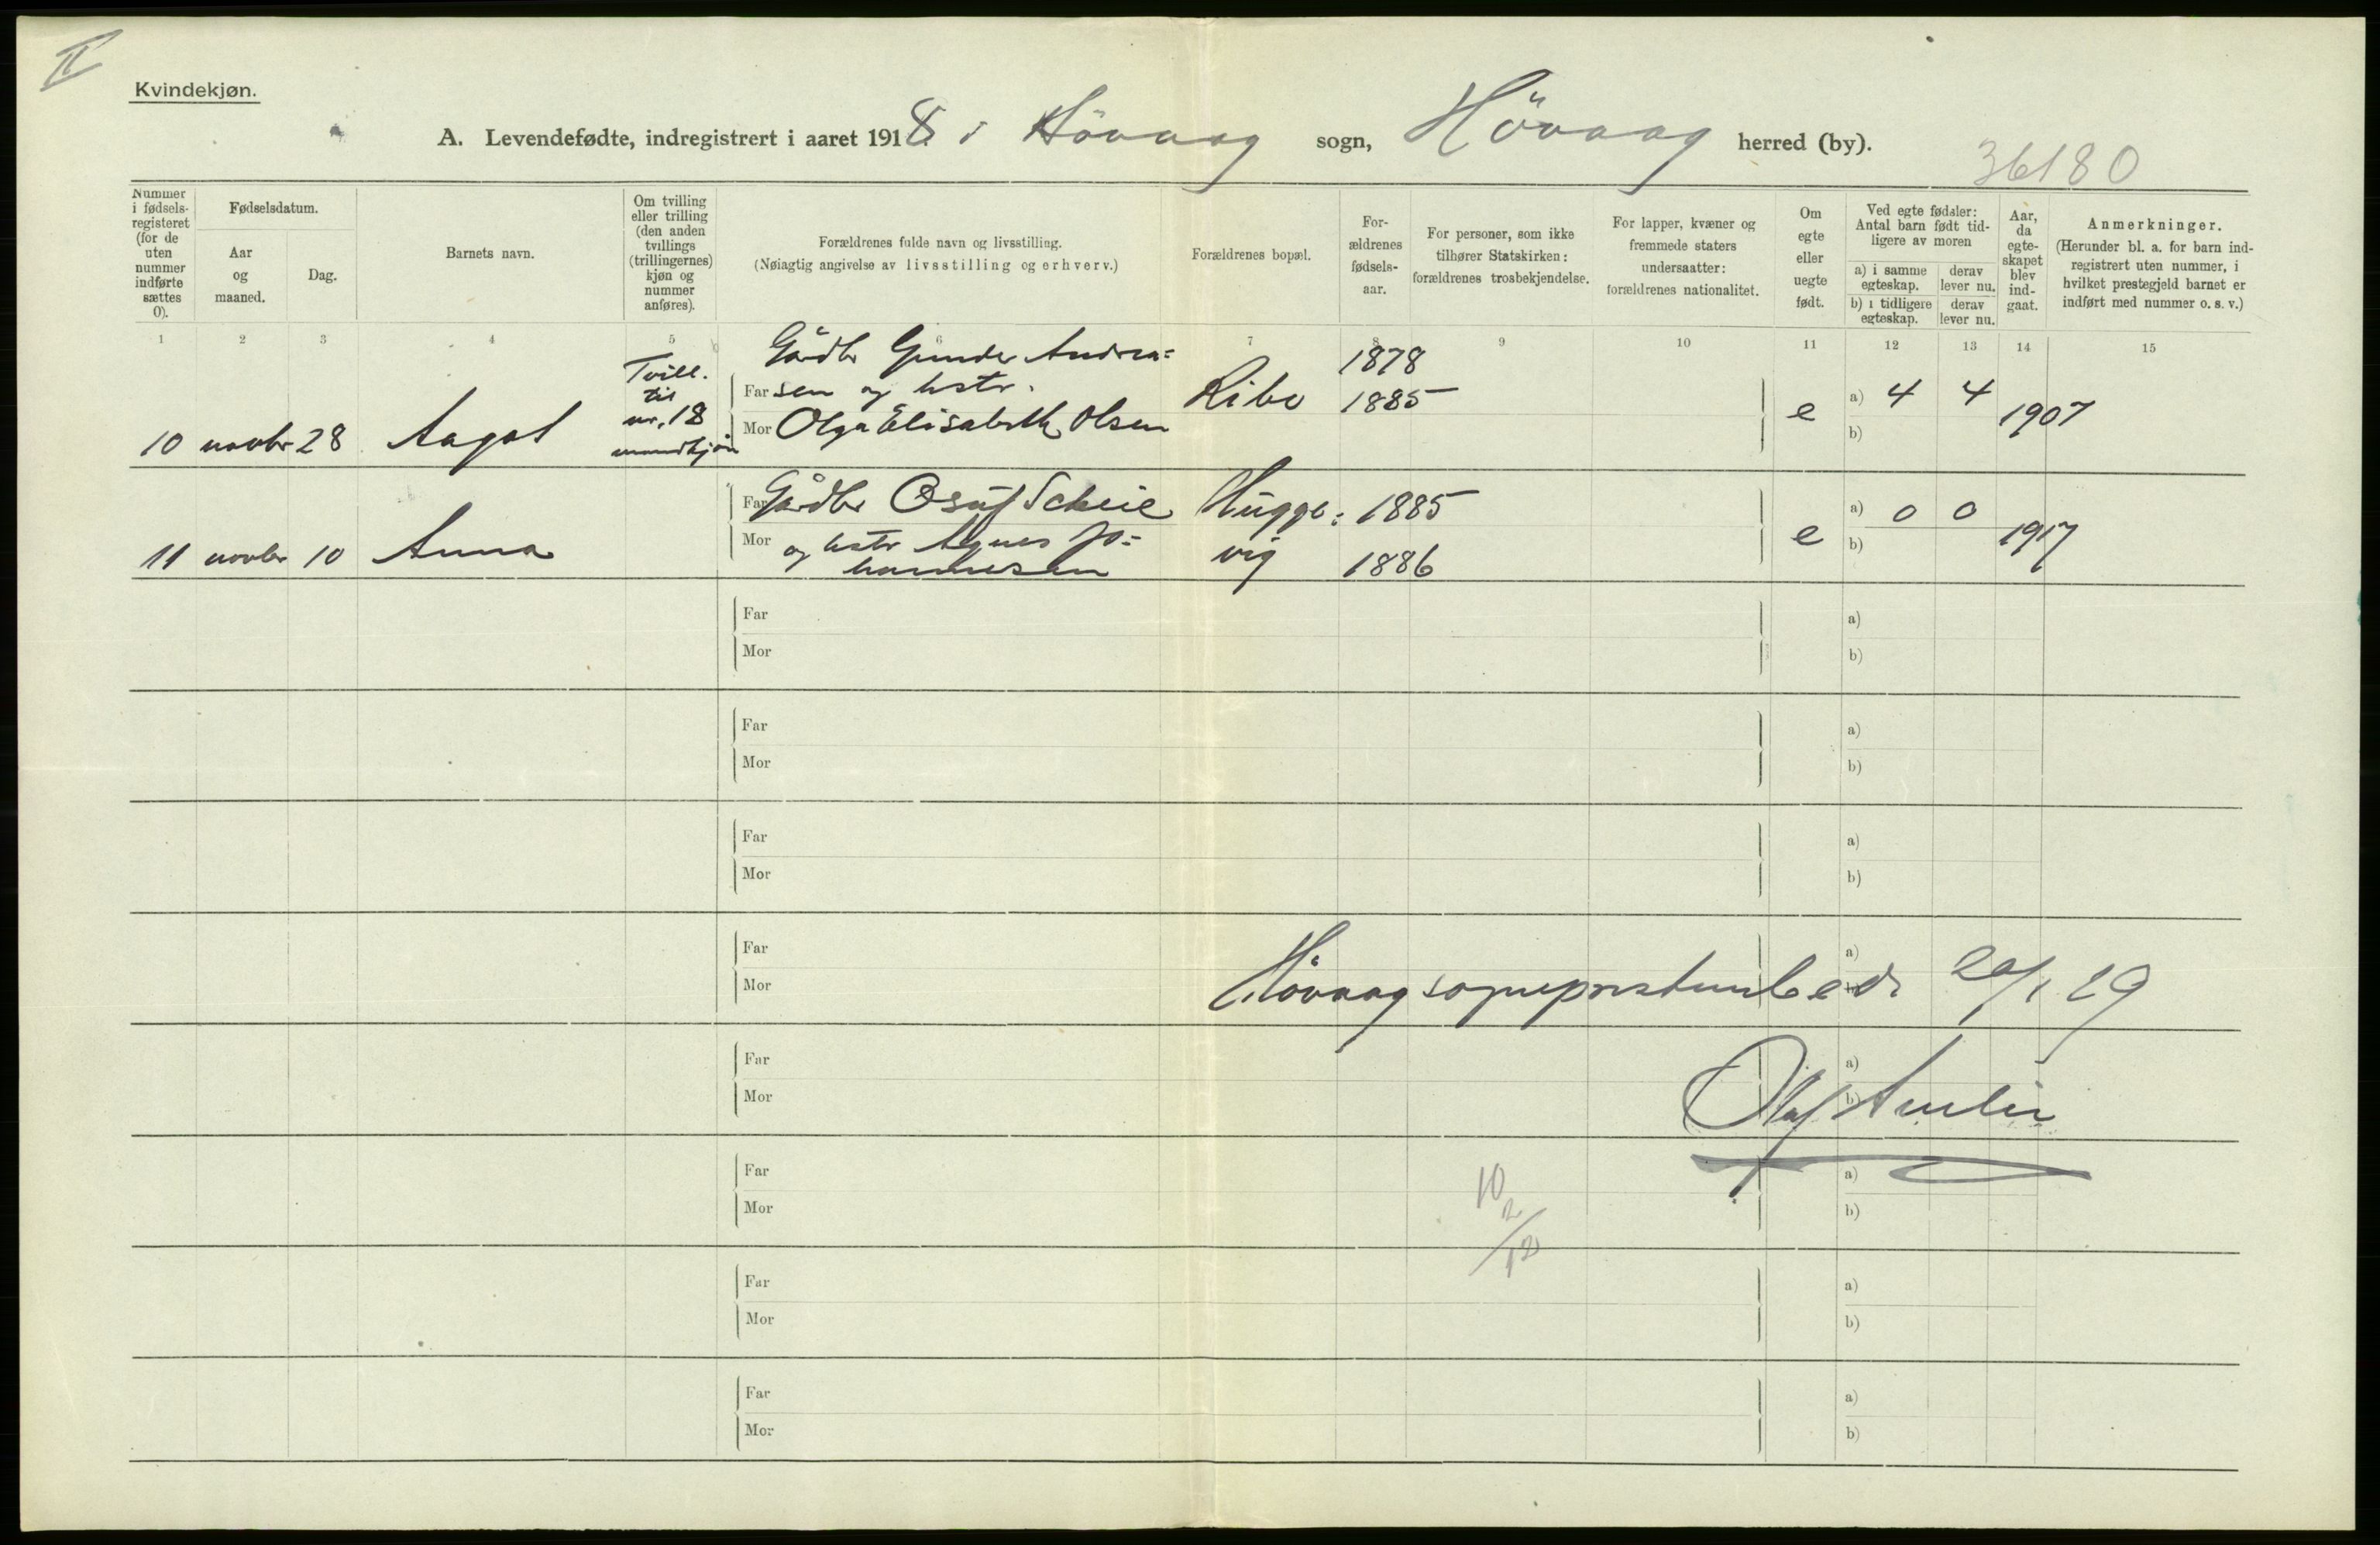 II
Kvindekjøn.
A. Levendefødte, indregistrert i aaret 1918 i Høvaag sogn, Høvaag herred (by).
36180
Nummer i fødsels-registeret (for de uten nummer indførte sættes 0).
Fødselsdatum.
Aar og maaned.
Dag.
Barnets navn.
Om tvilling eller trilling (den anden tvillings (trillingernes) kjøn og nummer anføres).
Forældrenes fulde navn og livsstilling.
(Nøiagtig angivelse av livsstilling og erhverv.)
Forældrenes bopæl.
For-ældrenes fødsels-aar.
For personer, som ikke tilhører Statskirken: forældrenes trosbekjendelse.
For lapper, kvæner og fremmede staters undersaatter: forældrenes nationalitet.
Om egte eller uegte født.
Ved egte fødsler: Antal barn født tid-ligere av moren
a) i samme egteskap.
derav lever nu.
b) i tidligere egteskap.
derav lever nu.
Aar, da egte-skapet blev ind-gaat.
Anmerkninger.
(Herunder bl. a. for barn ind-registrert uten nummer, i hvilket prestegjeld barnet er indført med nummer o. s. v.)
1 2 3 4 5 6 7 8 9 10 11 12 13 14 15
Tvill.
til
nr. 18
mandkjøn
Gårdbr Gunder Andrea=
Far sen og hstr.
Mor Olga Elisabeth Olsen
Ribe
1878
1885
10 novbr 28 Aagot
e
a) 4 4
b)
1907
Far Gårdbr Osuf Scheie
Mor og hstr Agnes Jo=
hannesen
Hügge=
vig
1885
1886
11 novbr 10 Anna
e
a) 0 0
b)
1917
Far a)
Mor b)
Far a)
Mor b)
Far a)
Mor b)
Far a)
Mor
Høvaag sogneprestembede 20/1 19
Far a)
Mor b)
Olaf
Far a)
Mor b)
10
2
/12
Far a)
Mor b)
Far a)
Mor b)